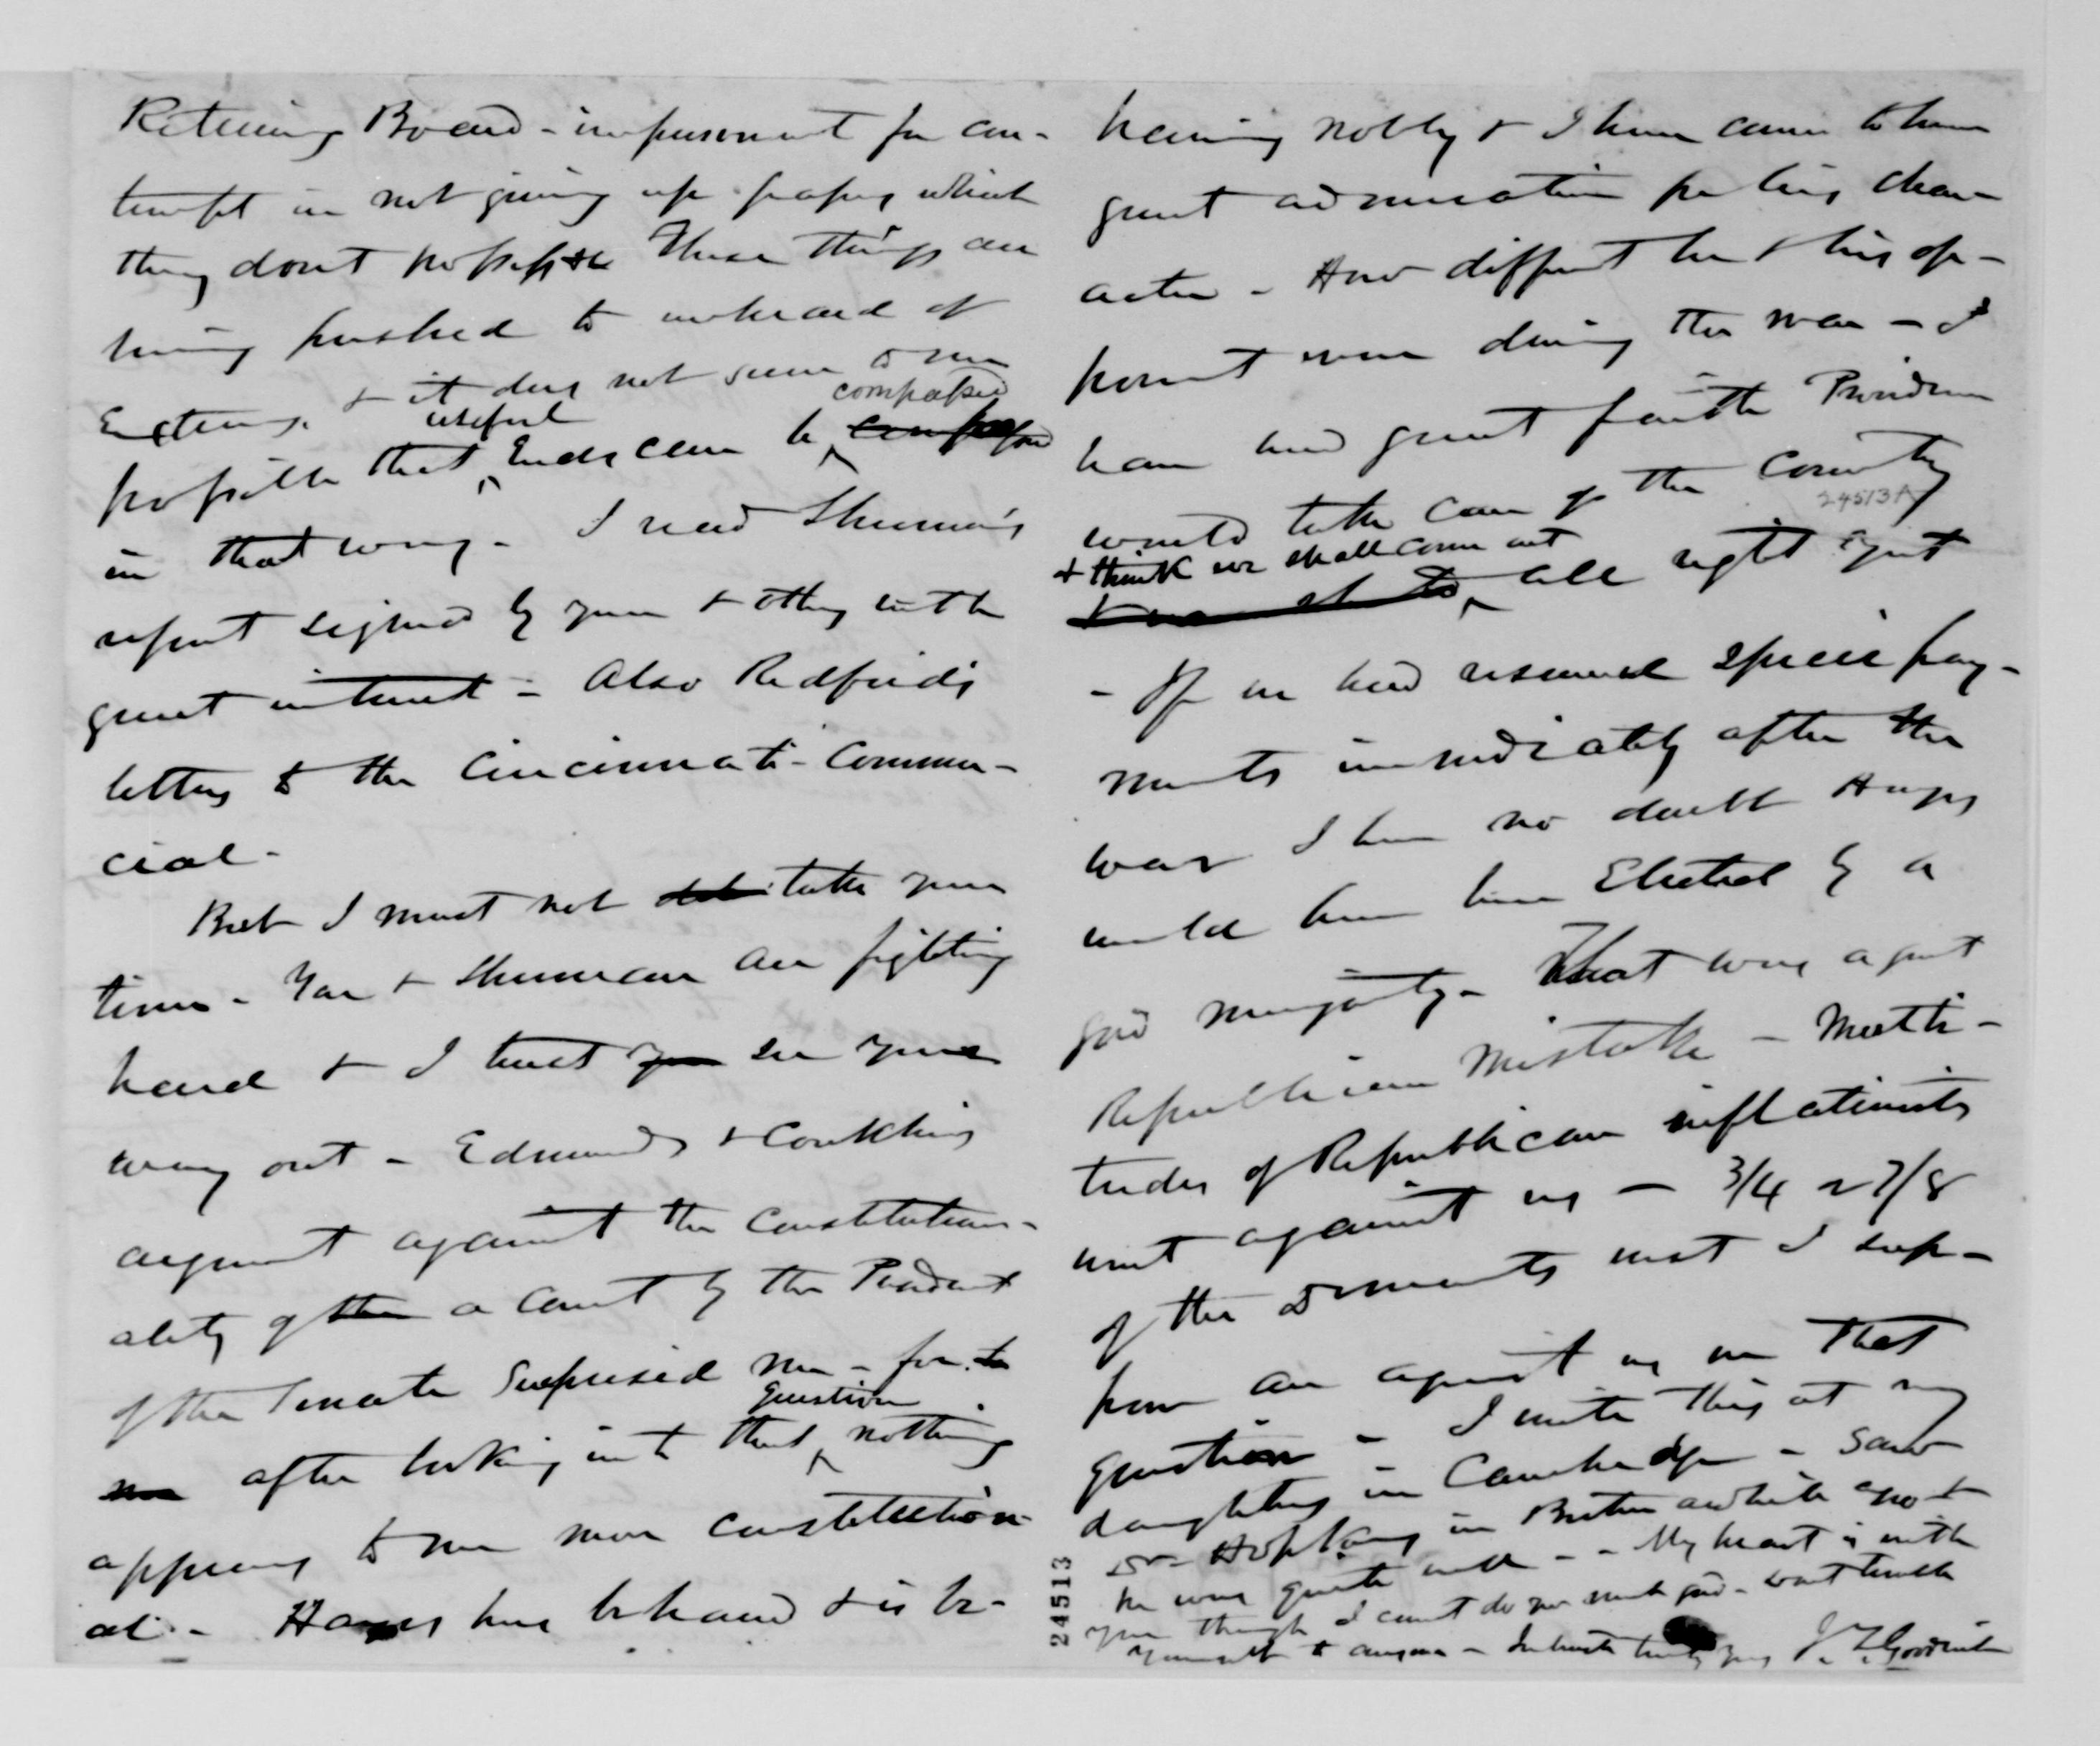 Returning Board - imprisonment for con-
tempt in not giving up papers which
they don't possess These things are
being pushed to unheard of
Extent, & it does not seem to me
useful compassed
possible that Ends can be
in that way - I read Sherman's
report signed by you & others with
great interest - Also Redfield's
letters to the Cincinnati - Commer-
cial -
But I must not take your
time - You & Sherman are fighting
hard & I trust you see your
way out - Edmunds & Conkling
argument against the Constitution-
ality of the a count by the President
of the Senate surprised me - for to
question
me after looking into that nothing
appears to me more constitution-
al - Hayes has behaved & is be-
having nobly & I have come to have
great admiration for his char-
acter - How different he & his op-
ponent were during the war - I
have had great faith Providence
would take care of the Country
24513A
& think we shall come out
all right yet
- If we had resumed specie pay-
ments immediately after the
war I have no doubt Hayes
would have been Elected by a
good majority - That was a great
Republican mistake - Multi-
tudes of Republican inflationists
went against us - 3/4 or 7/8
of the Democrats west I sup-
pose are against us on that
question - I write this at my
daughters in Cambridge - Saw
Dr Hopkins in Boston awhile ago &
he was quite well - - My heart is with
you though I cannot do you much good - don't trouble
yourself to answer - In haste truly yours J. Z. Goodrich
24513